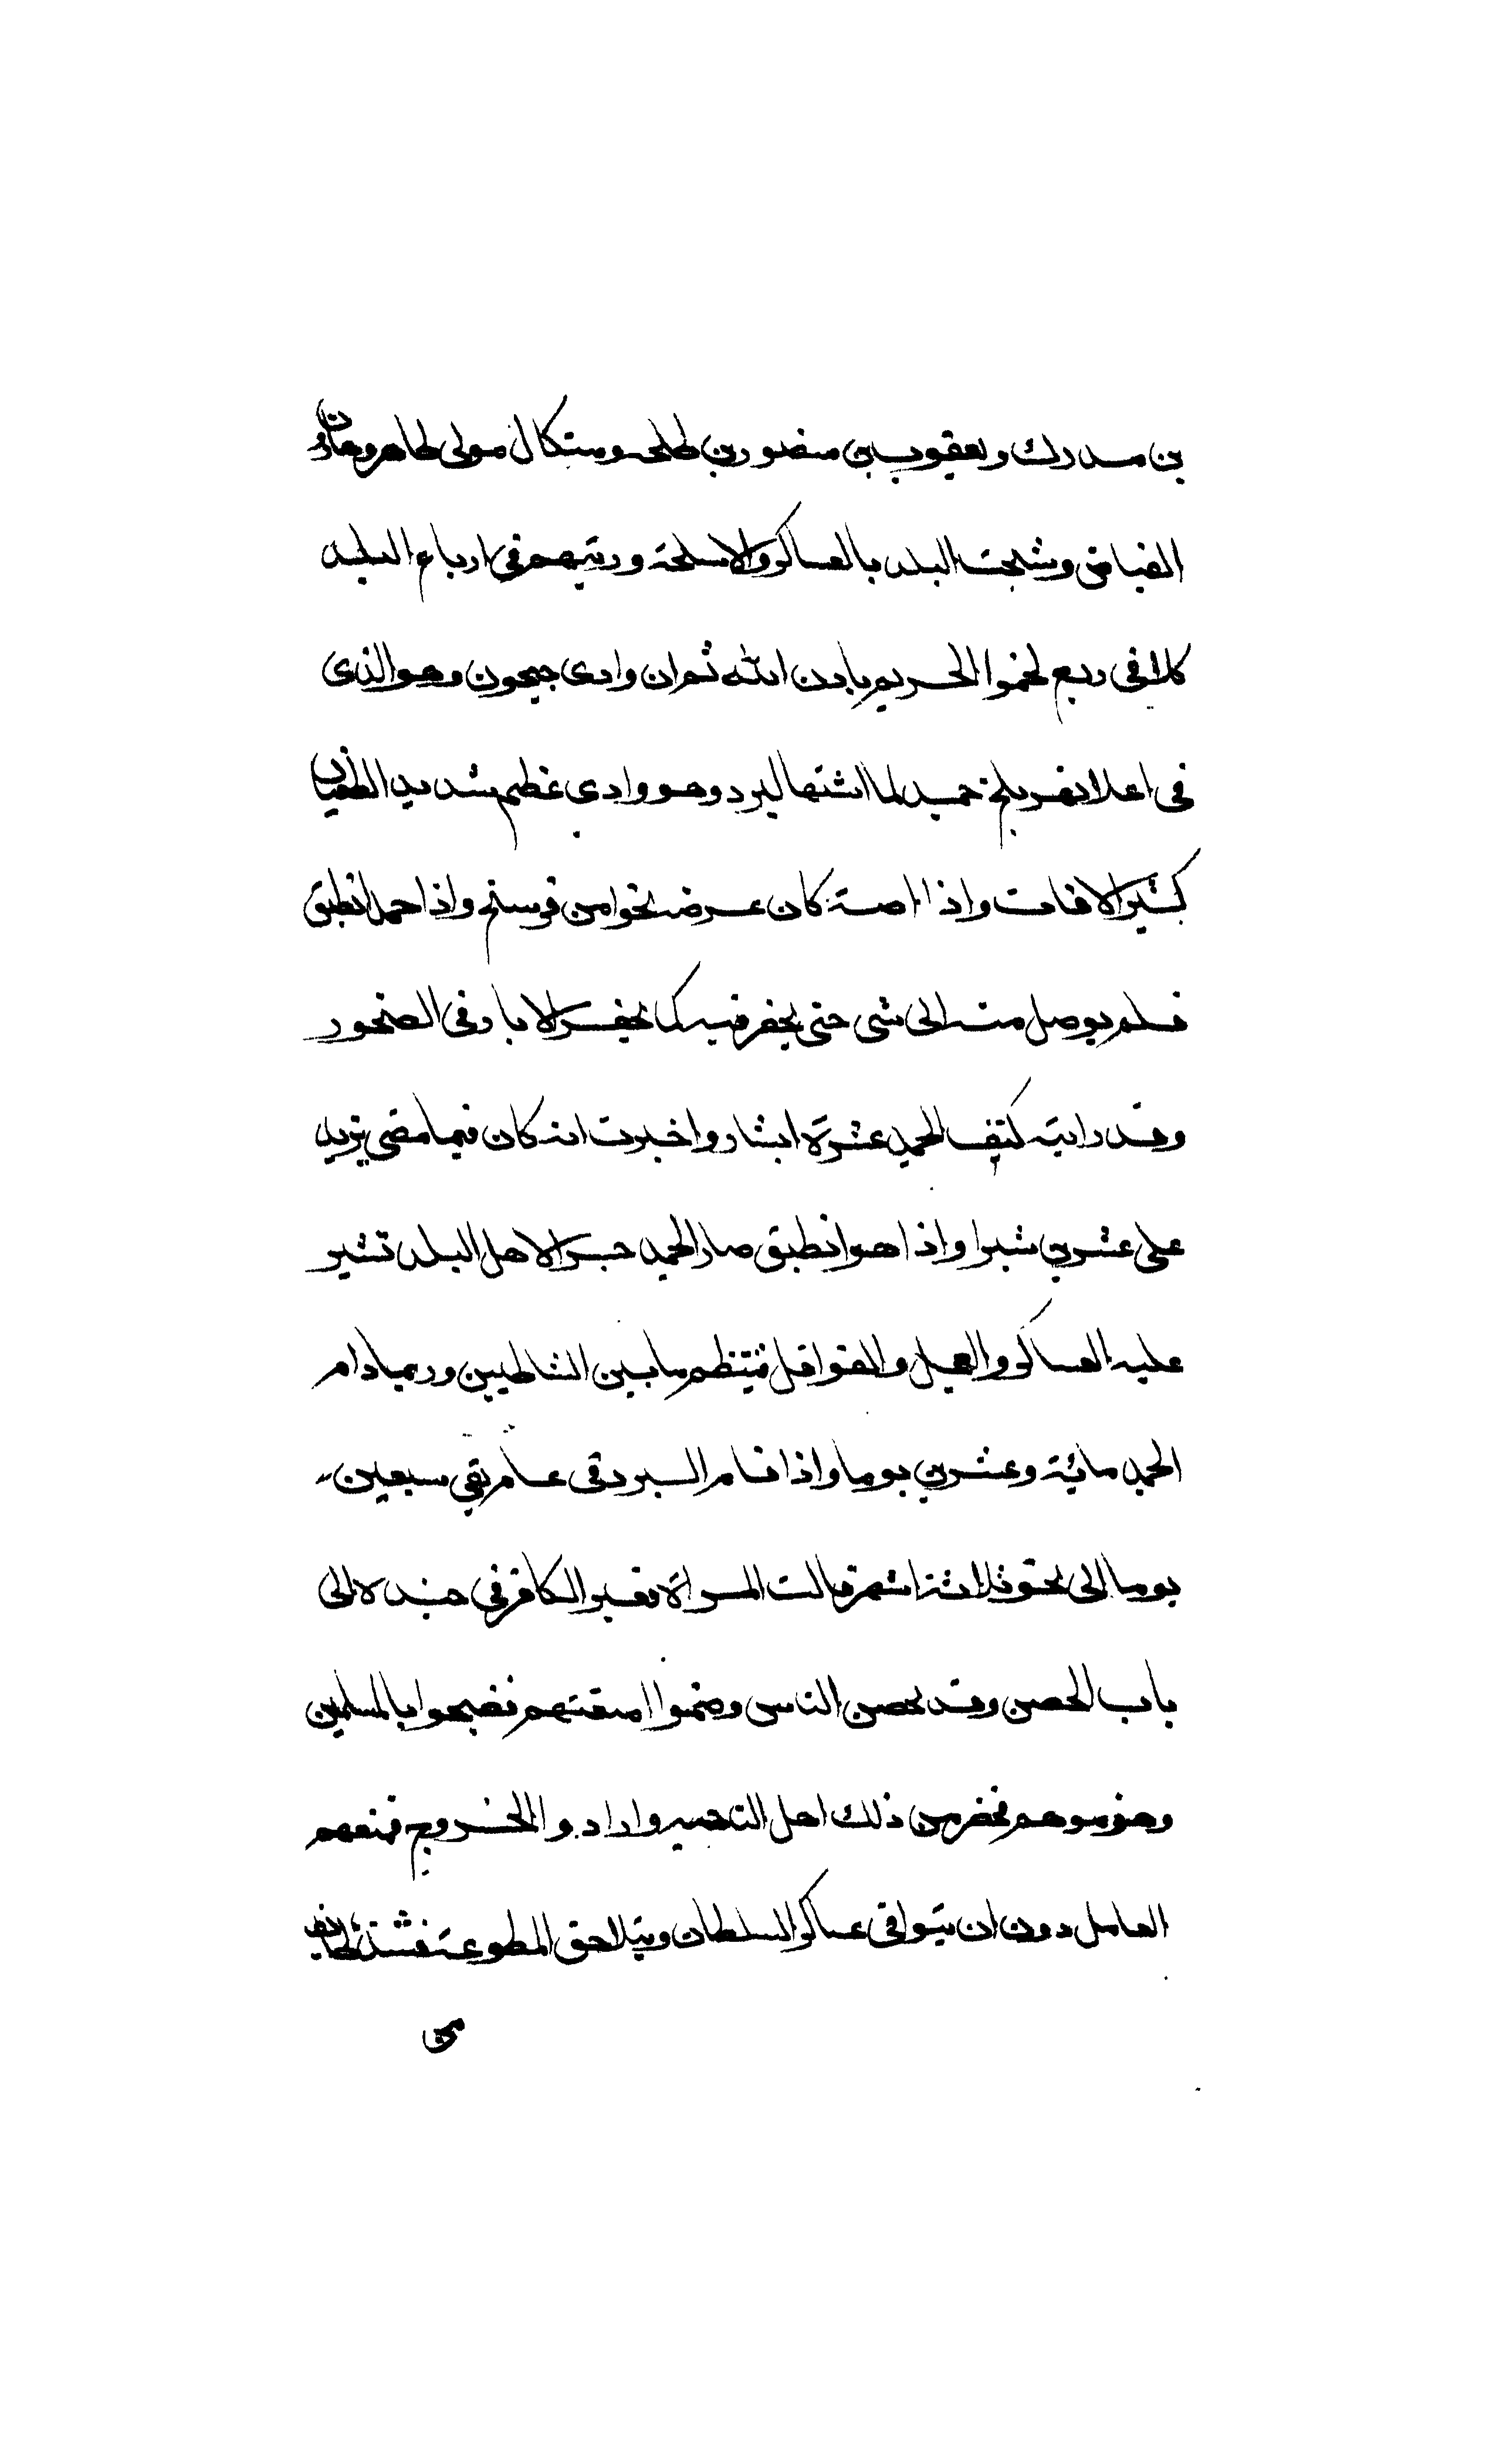 بن مدرك ويعقوب بن منصور بن طلحه وميكال مولى طاهر وهارون
الفياض وشحنت البلد بالعساكر والاسلحة ورتبهم في ارباع البلد
كلا في ربع لحموا الحريم باذن الله ثم ان وادى جيحون وهو الذى
فى اعلا نهر بلخ جمد لما اشتد البرد وهو وادي عظيم شديد الطغيان
كثير الافات واذا امتد كان عرضه نحوا من فرسخ واذا جمد انطبق
فلم يوصل منه الى شى حتى يحفر فيه كما يحفر الابار في الصخور
وقد رايت كثف الجمد عشرة اشبار واخبرت انه كان فيما مضى يزيد
على عشرين شبرا واذا هو انطبق صار الجمد جسرا لاهل البلد تسير
عليه العساكر والعجل والقوافل فينتظم ما بين الشاطيين وربما دام
الجمد مائة وعشرين يوما واذا قل البرد في عام بقي سبعين
يوما الى نحو ثلاثة اشهر قالت المراة فعبر الكافر في جنده الى
باب الحصن وقد تحصن الناس وضموا امتعتهم فضجوا بالمسلمين
وضربوهم فحضر من ذلك اهل الناحية وارادوا الخروج فمنعهم
العامل دون ان يتوافى عساكر السلطان ويتلاحق المطوعة فشد طائفة
من